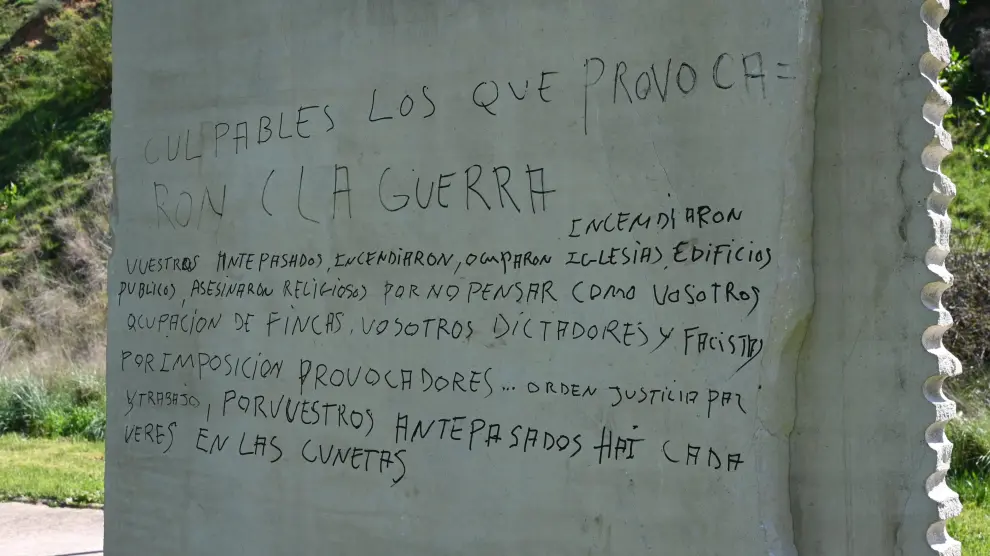 CULPABLES LOS QUE PROVOCA=
RON ( LA GUERRA
INCENDIARON
VUESTROS ANTEPASADOS, INCENDIARON, OCUPARON IGLESIAS, EDIFICIOS
PUBLICOS, ASESINARON RELIGIOSOS POR NO PENSAR COMO VOSOTROS
OCUPACION DE FINCAS, VOSOTROS DICTADORES Y FACISTAS
POR IMPOSICIÓN PROVOCADORES... ORDEN JUSTICIA PAZ
Y TRABAJO, POR VUESTROS ANTEPASADOS HAI CADA
VERES EN LAS CUNETAS